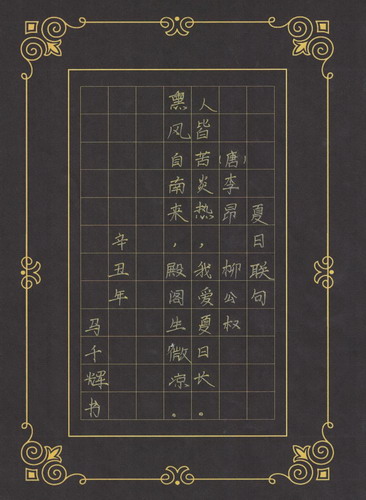 夏日联句
(唐)李昂 柳公权
人皆苦炎热，我爱夏日长。
熏风自南来，殿阁生微凉。
辛丑年
马千辉书